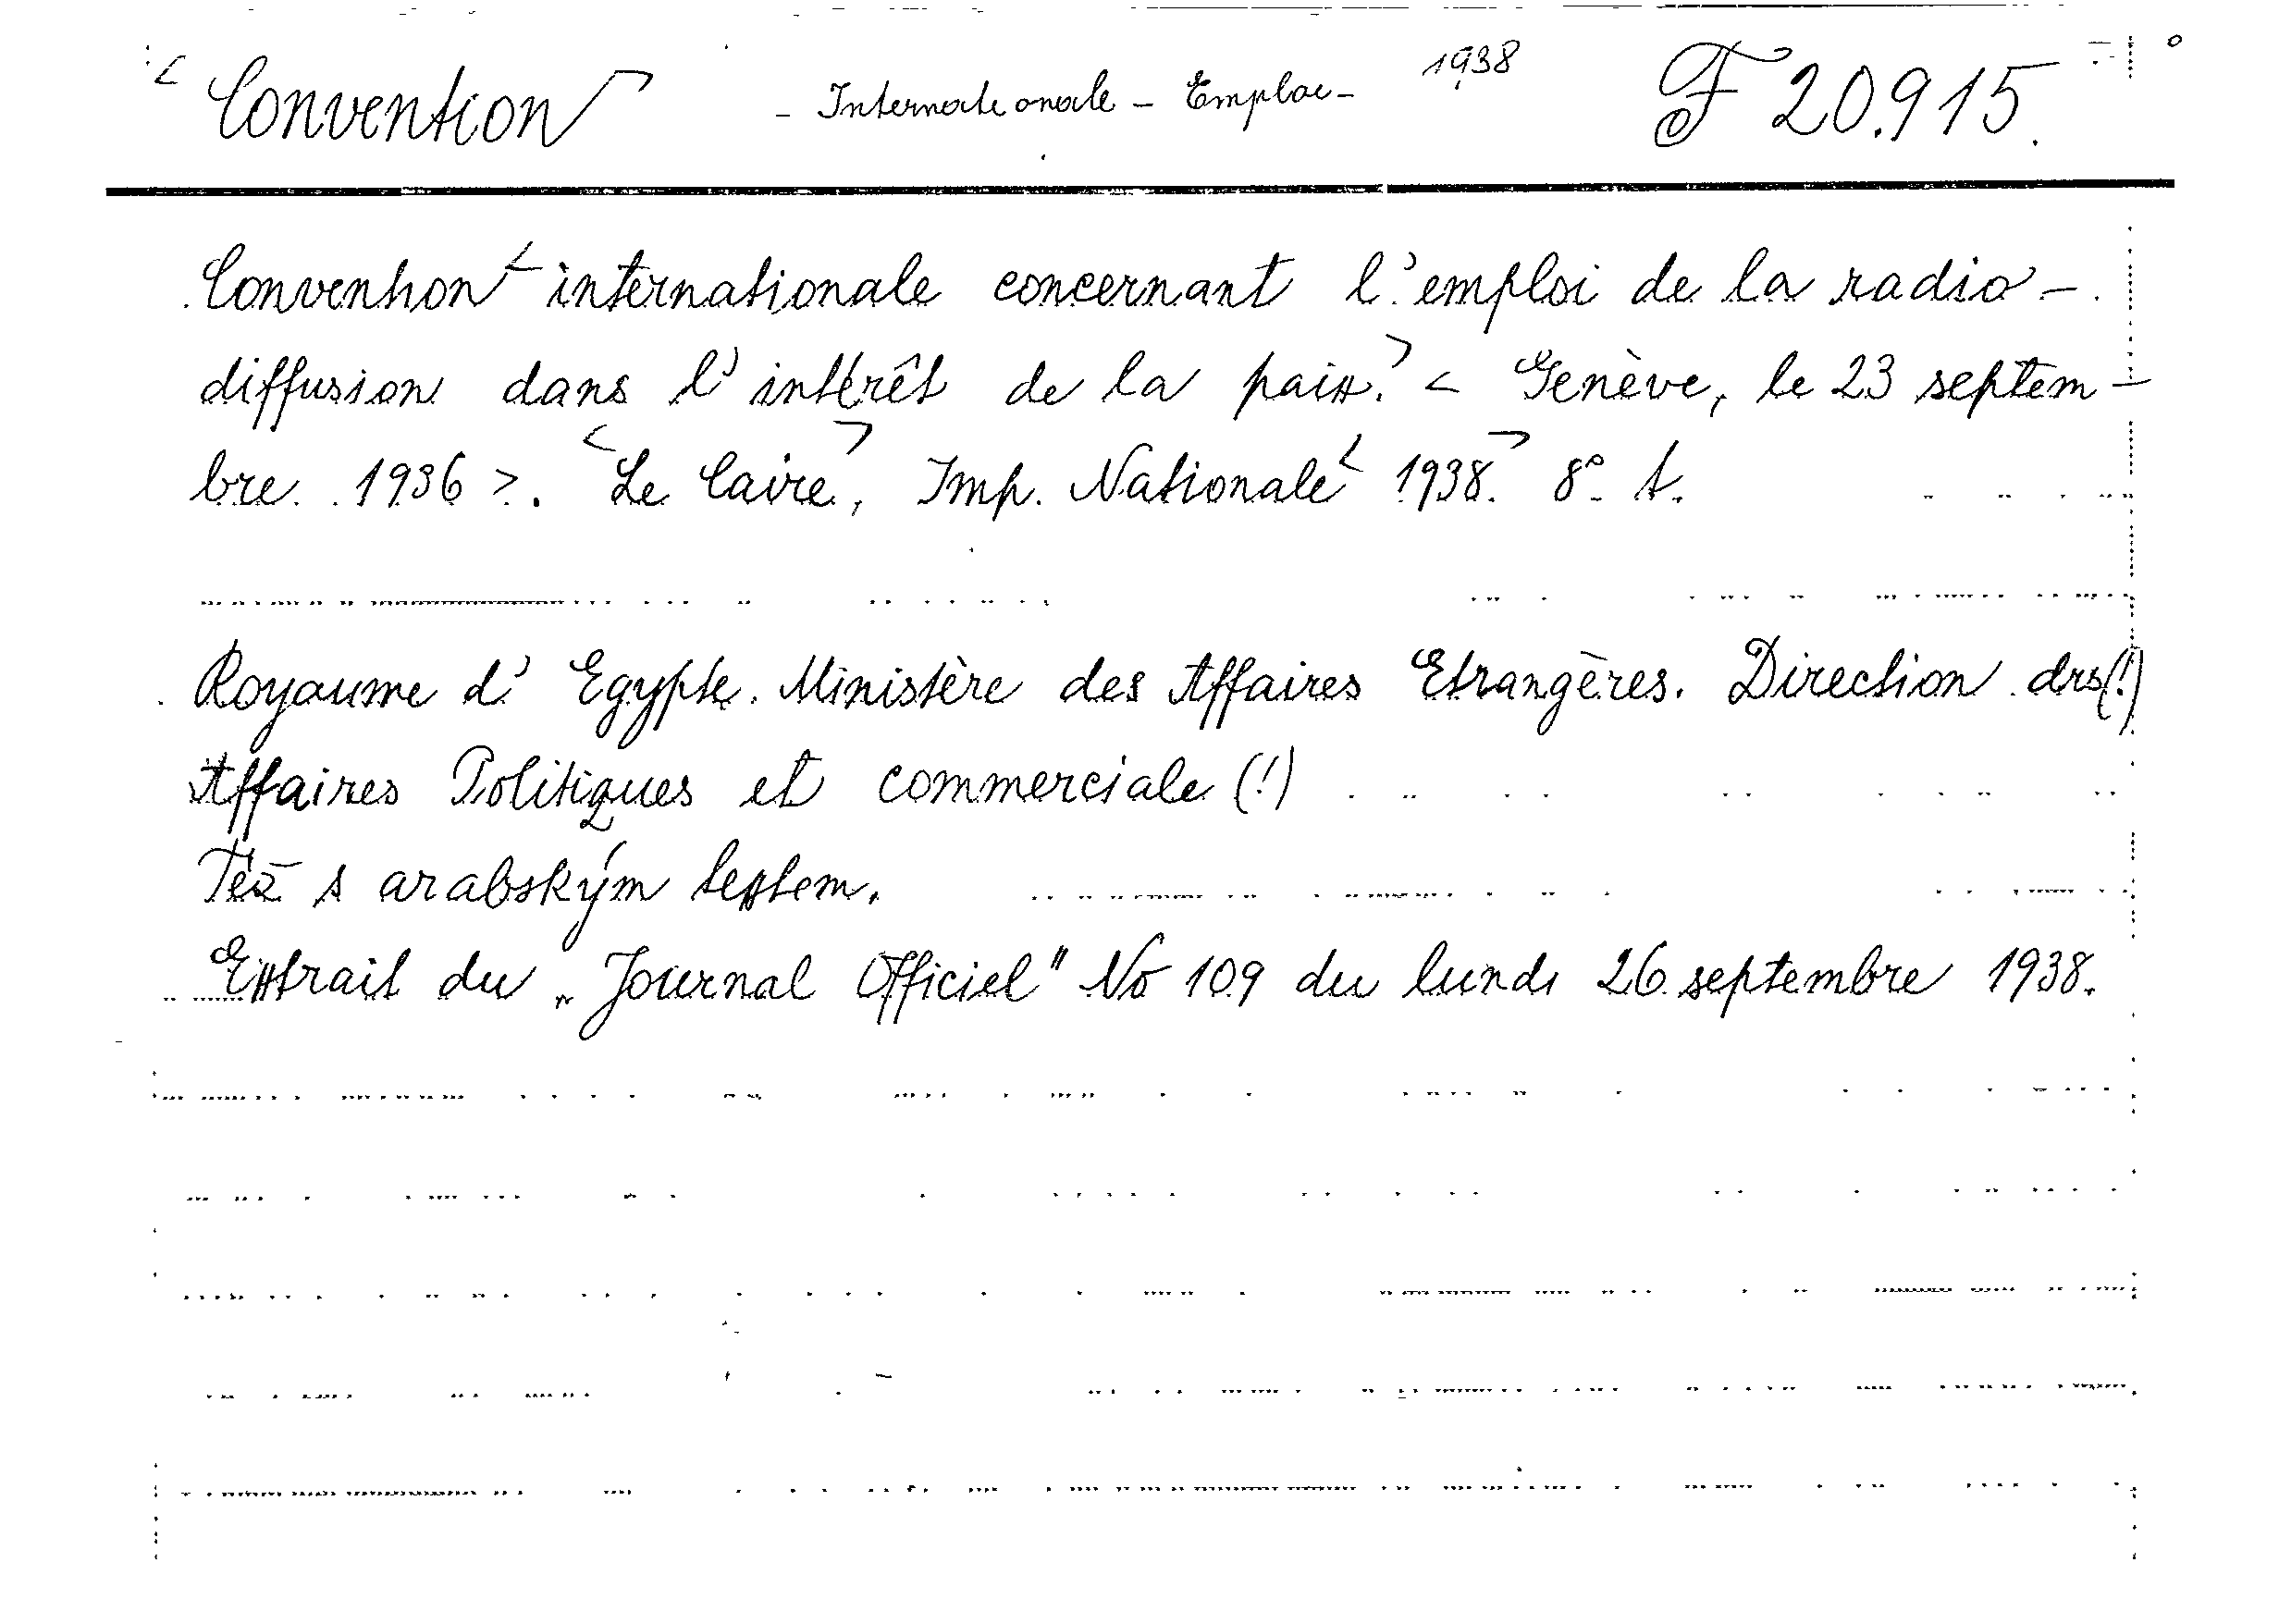 <Convention> - Internationale - Emploi - 1938 F 20.915.
Convention< internationale concernant l'emploi de la radio-
diffusion dans l'intérêt de la paix.> < Genève, le 23 septem-
bre 1936 >. <Le Caire>, Imp. Nationale <1938.> 8° t.
Royaume d' Egypte. Ministère des Affaires Etrangères. Direction drs(!)
Affaires Politiques et commerciale (!)
Též s arabským textem.
Extrait du „Journal Officiel" No 109 du lundi 26 septembre 1938.